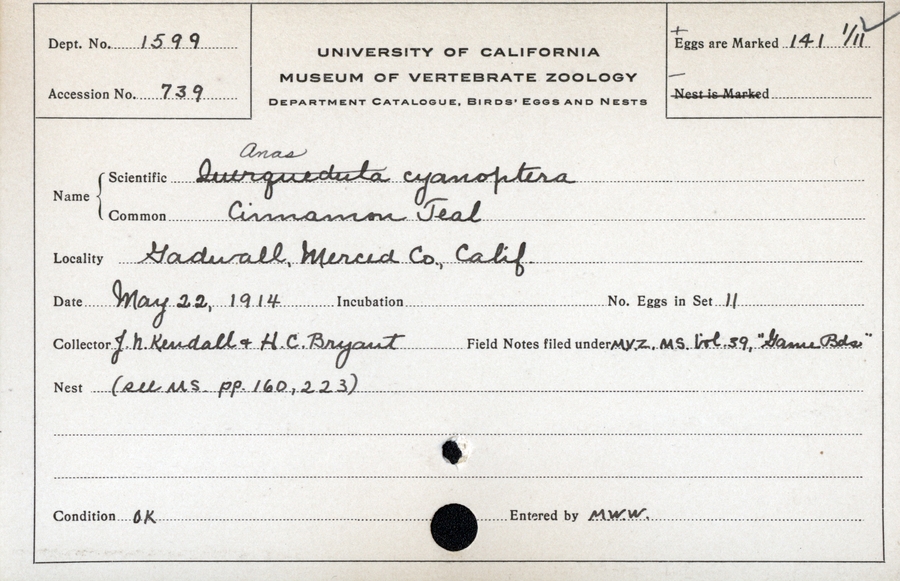 Dept. No. 1599
Accession No. 739
UNIVERSITY OF CALIFORNIA
MUSEUM OF VERTEBRATE ZOOLOGY
DEPARTMENT CATALOGUE, BIRDS' EGGS AND NESTS
+
Eggs are Marked 141 1/11 ✓
–
Nest is Marked
Anas
Name { Scientific Querquedula cyanoptera
Common Cinnamon Teal
Locality Gadwall, Merced Co., Calif.
Date May 22, 1914 Incubation No. Eggs in Set 11
Collector J. N. Kendall & H. C. Bryant Field Notes filed under M.V.Z. MS. Vol. 39, "Game Bds."
Nest (see MS. pp. 160, 223)
Condition OK Entered by M.W.W.